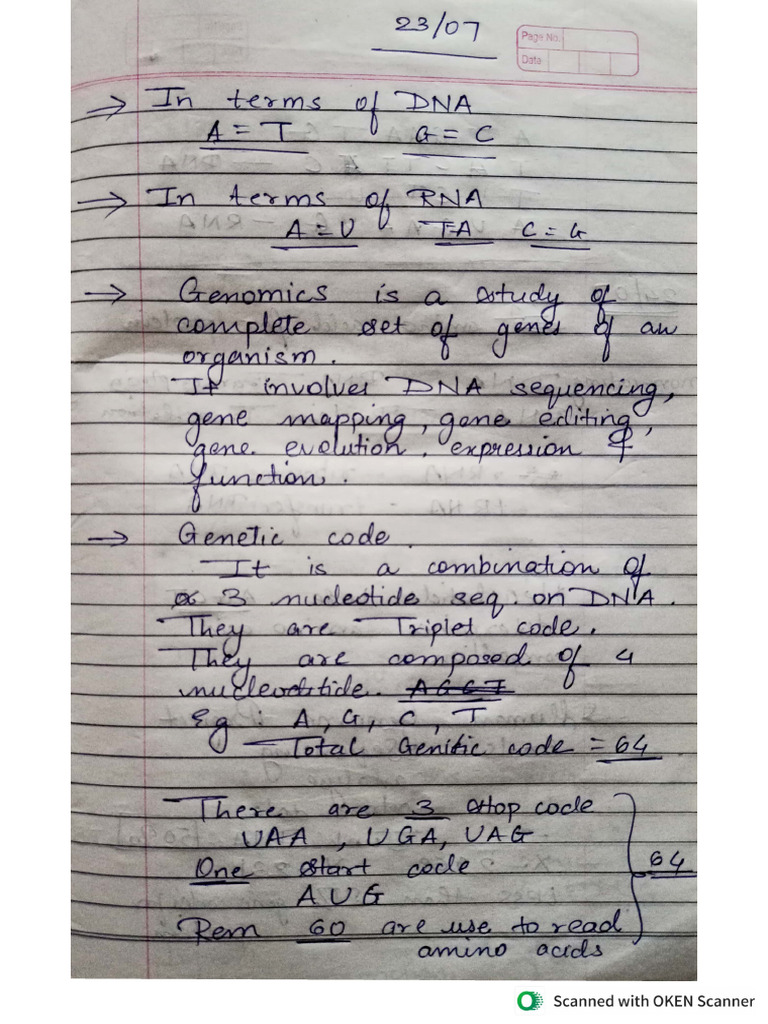 23/07
Page No.
Date
→ In terms of DNA
A = T G = C
→ In terms of RNA
A = U TA C = G
→ Genomics is a study of
complete set of genes of an
organism.
It involves DNA sequencing,
gene mapping, gene editing,
gene evolution, expression &
function.
→ Genetic code.
It is a combination of
3 nucleotide seq. on DNA.
They are Triplet code.
They are composed of 4
nucleotide. AGCT
Eg : A, G, C, T
Total Genitic code = 64
There are 3 stop code
UAA, UGA, UAG
One start code
64
AUG
Rem 60 are use to read
amino acids
Scanned with OKEN Scanner